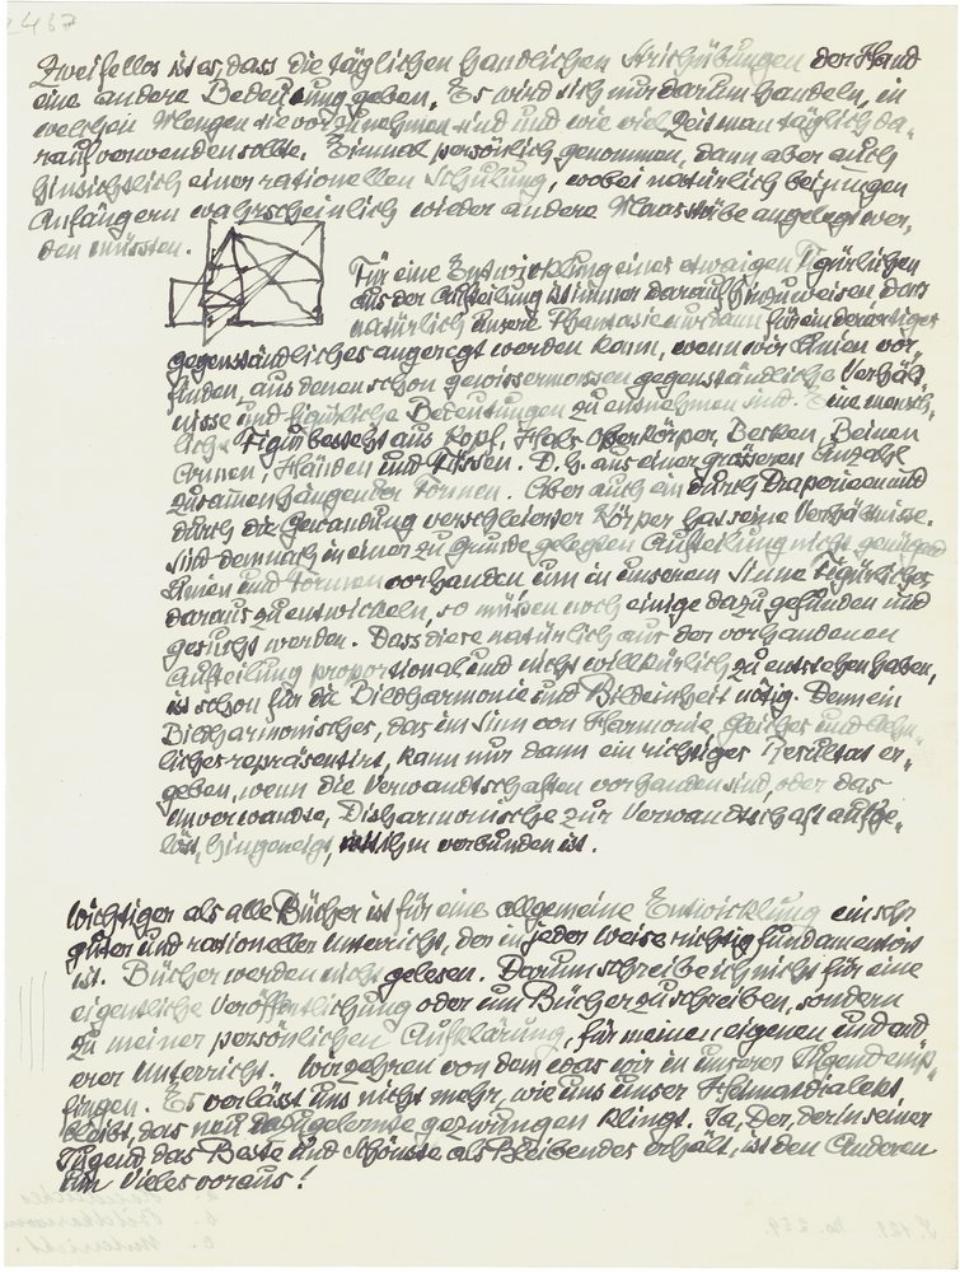 2467
Zweifellos ist es, dass die täglichen handlichen Strichübungen der Hand
eine andere Bedeutung geben. Es wird sich nur darum handeln, in
welchen Mengen sie vorzunehmen sind und wie viel Zeit man täglich da-
rauf verwenden sollte. Einmal persönlich genommen, dann aber auch
hinsichtlich einer rationellen Schulung, wobei natürlich bei jungen
Anfängern wahrscheinlich wieder andere Maasstäbe angelegt wer-
den müssten.
Für eine Entwicklung eines etwaigen Figürlichen
aus der Aufteilung ist immer darauf hinzuweisen dass
natürlich unsere Phantasie nur dann für ein derartiges
gegenständliches angeregt werden kann, wenn wir Linien vor-
finden, aus denen schon gewissermassen gegenständliche Verhält-
nisse und figürliche Bedeutungen zu entnehmen sind. Eine mensch-
liche Figur besteht aus Kopf, Hals, Oberkörper, Becken, Beinen
Armen, Händen und Füssen. D.h. aus einer grösseren Anzahl
zusammenhängender Formen. Aber auch ein durch Draperieen und
durch die Gewandung verschleierter Körper hat seine Verhältnisse.
Sind demnach in einer zu Grunde gelegten Aufteilung nicht genügend
Linien und Formen vorhanden, um in unserem Sinne Figürliches
daraus zu entwickeln, so müssen noch einige dazu gefunden und
gesucht werden. Dass diese natürlich aus der vorhandenen
Aufteilung proportional und nicht willkürlich zu entstehen haben,
ist schon für die Bildharmonie und Bildeinheit nötig. Denn ein
Bildharmonisches, das im Sinn von Harmonie, Gleiches und Aehn-
liches repräsentirt, kann nur dann ein richtiges Resultat er-
geben, wenn die Verwandtschaften vorhanden sind, oder das
unverwandte, Disharmonische zur Verwandtschaft aufge-
löst, hingeneigt, mit ihm verbunden ist.
Wichtiger als alle Bücher ist für eine allgemeine Entwicklung ein sehr
guter und rationeller Unterricht, der in jeder Weise richtig fundamentirt
ist. Bücher werden nicht gelesen. Darum schreibe ich nicht für eine
eigentliche Veröffentlichung oder um Bücher zu schreiben, sondern
zu meiner persönlichen Aufklärung, für meinen eigenen und and-
erer Unterricht. Wir zehren von dem was wir in unserer Jugend emp-
fingen. Es verlässt uns nicht mehr, wie uns unser Heimatdialekt
bleibt, das neu dazugelernte gezwungen klingt. Ja, Der, der in seiner
Jugend das Beste und Schönste als Bleibendes erhält, ist den Anderen
um Vieles voraus!